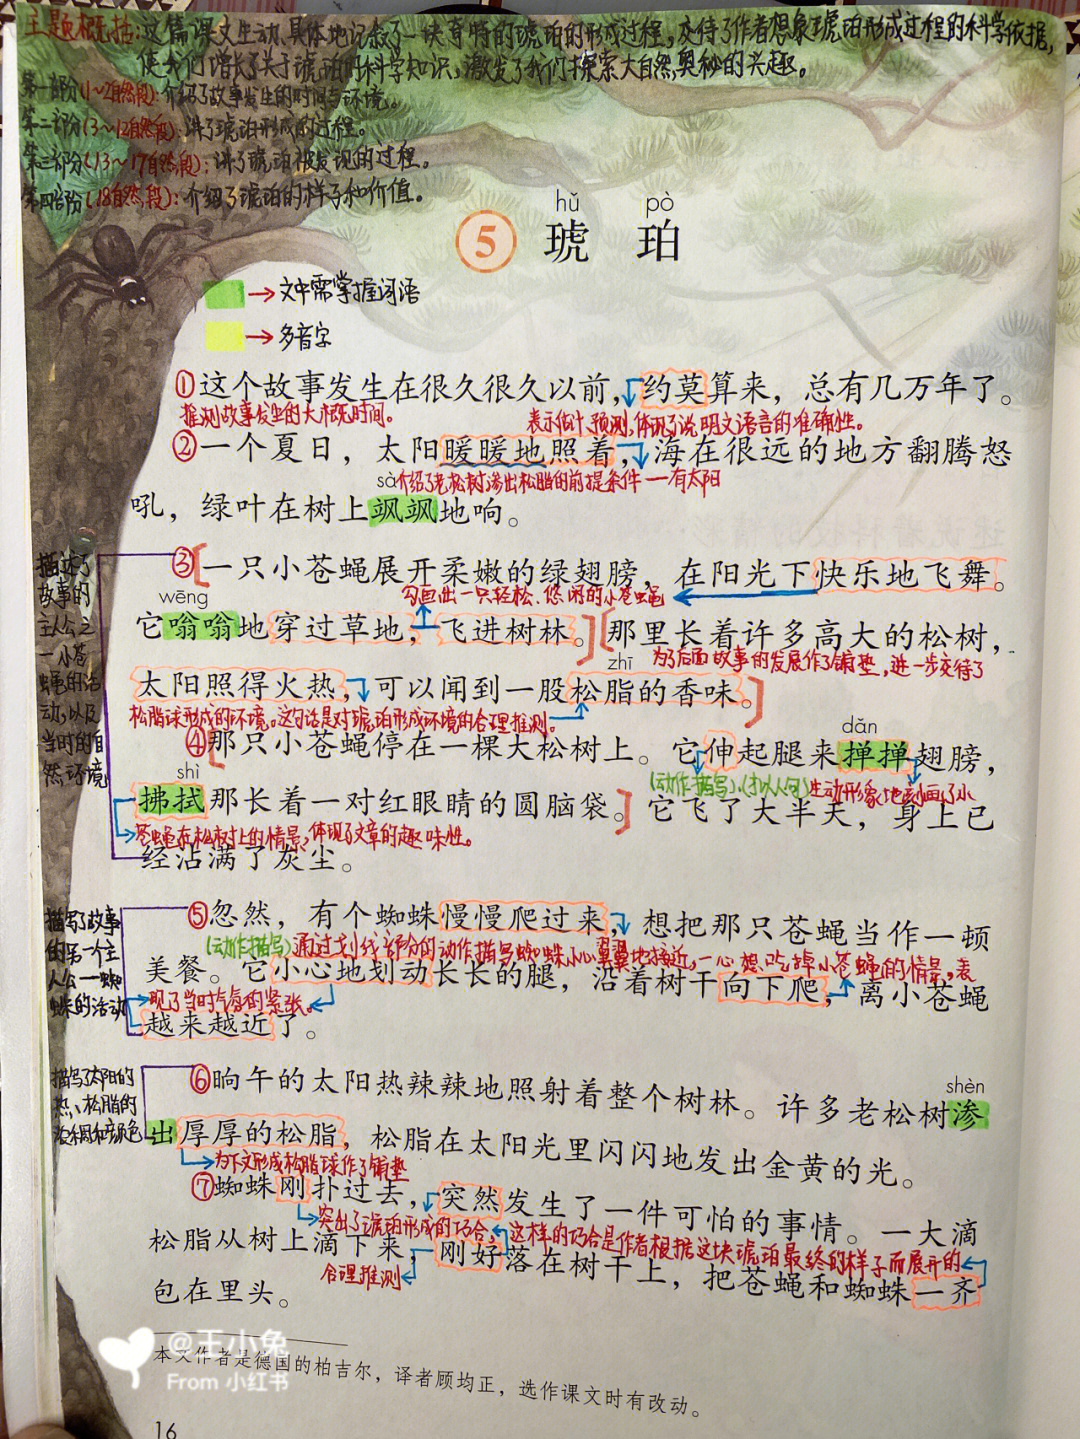 主题概括:这篇课文生动、具体地记叙了一块奇特的琥珀的形成过程,交待了作者想象琥珀形成过程的科学依据,
使我们增长了关于琥珀的科学知识,激发了我们探索大自然奥秘的兴趣。
第一部分(1～2自然段):介绍了故事发生的时间与环境。
第二部分(3～12自然段):讲了琥珀形成的过程。
第三部分(13～17自然段):讲了琥珀被发现的过程。
第四部分(18自然段):介绍了琥珀的样子和价值。
hǔ pò
5 琥珀
→文中需掌握词语
→多音字
①这个故事发生在很久很久以前,约莫算来,总有几万年了。
推测故事发生的大概时间。
表示估计、预测,体现了说明文语言的准确性。
②一个夏日,太阳暖暖地照着,海在很远的地方翻腾怒
sà
介绍了老松树渗出松脂的前提条件—有太阳
吼,绿叶在树上飒飒地响。
描述了
故事的
主人公之
一小苍
蝇的活
动,以及
当时的自
然环境
③一只小苍蝇展开柔嫩的绿翅膀,在阳光下快乐地飞舞。
wēng
勾画出一只轻松、悠闲的小苍蝇
它嗡嗡地穿过草地,飞进树林。那里长着许多高大的松树,
zhī
为了后面故事的发展作了铺垫,进一步交待了
太阳照得火热,可以闻到一股松脂的香味。
松脂球形成的环境。这句话是对琥珀形成环境的合理推测。
④那只小苍蝇停在一棵大松树上。它伸起腿来掸掸翅膀,
dǎn
shì
(动作描写)、(拟人句)生动形象地刻画了小
拂拭那长着一对红眼睛的圆脑袋。它飞了大半天,身上已
苍蝇在松树上的情景,体现了文章的趣味性。
经沾满了灰尘。
描写了故事
的另一个主
人公—蜘
蛛的活动
⑤忽然,有个蜘蛛慢慢爬过来,想把那只苍蝇当作一顿
(动作描写)通过划线部分的动作描写蜘蛛小心翼翼地接近,一心想吃掉小苍蝇的情景,表
美餐。它小心地划动长长的腿,沿着树干向下爬,离小苍蝇
现了当时气氛的紧张。
越来越近了。
描写了太阳的
热、松脂的
浓稠和颜色
⑥晌午的太阳热辣辣地照射着整个树林。许多老松树渗
shèn
出厚厚的松脂,松脂在太阳光里闪闪地发出金黄的光。
为下文形成松脂球作了铺垫
⑦蜘蛛刚扑过去,突然发生了一件可怕的事情。一大滴
突出了琥珀形成的巧合,这样的巧合是作者根据这块琥珀最终的样子而展开的
松脂从树上滴下来,刚好落在树干上,把苍蝇和蜘蛛一齐
合理推测
包在里头。
本文作者是德国的柏吉尔,译者顾均正,选作课文时有改动。
16
@王小兔
From 小红书